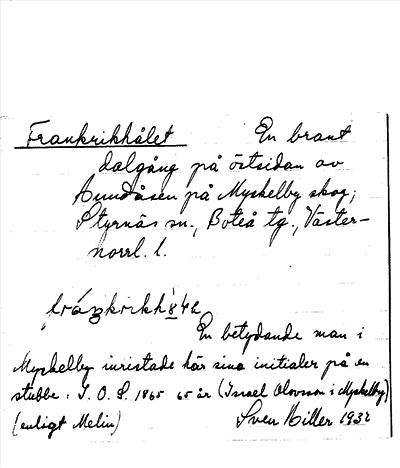 Frankrikhålet En brant
dalgång på östsidan av
Hundåsen på Myskelby skog,
Styrnäs sn., Boteå tg., Väster-
norrl. l.
En betydande man i
Myckelby inristade här sina initialer på en
stubbe: I. O. S. 1865 65 år (Israel Olovsson i Myckelby)
(enligt Melin) Sven Hiller 1932